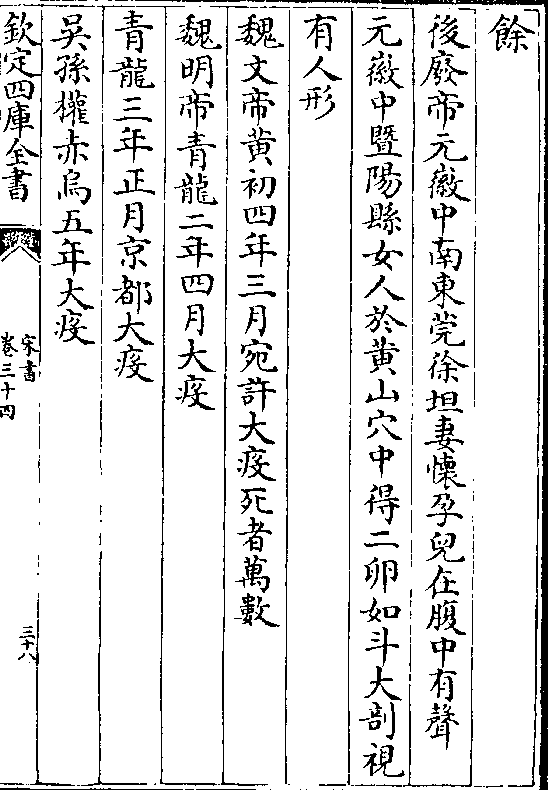 餘
後廢帝元徽中南東莞徐坦妻懷孕兒在腹中有聲
元徽中暨陽縣女人於黄山穴中得二卵如斗大剖視
有人形
魏文帝黄初四年三月宛許大疫死者萬數
魏明帝青龍二年四月大疫
青龍三年正月京都大疫
吳孫權赤烏五年大疫
欽定四庫全書
宋書
卷三十四
三十八